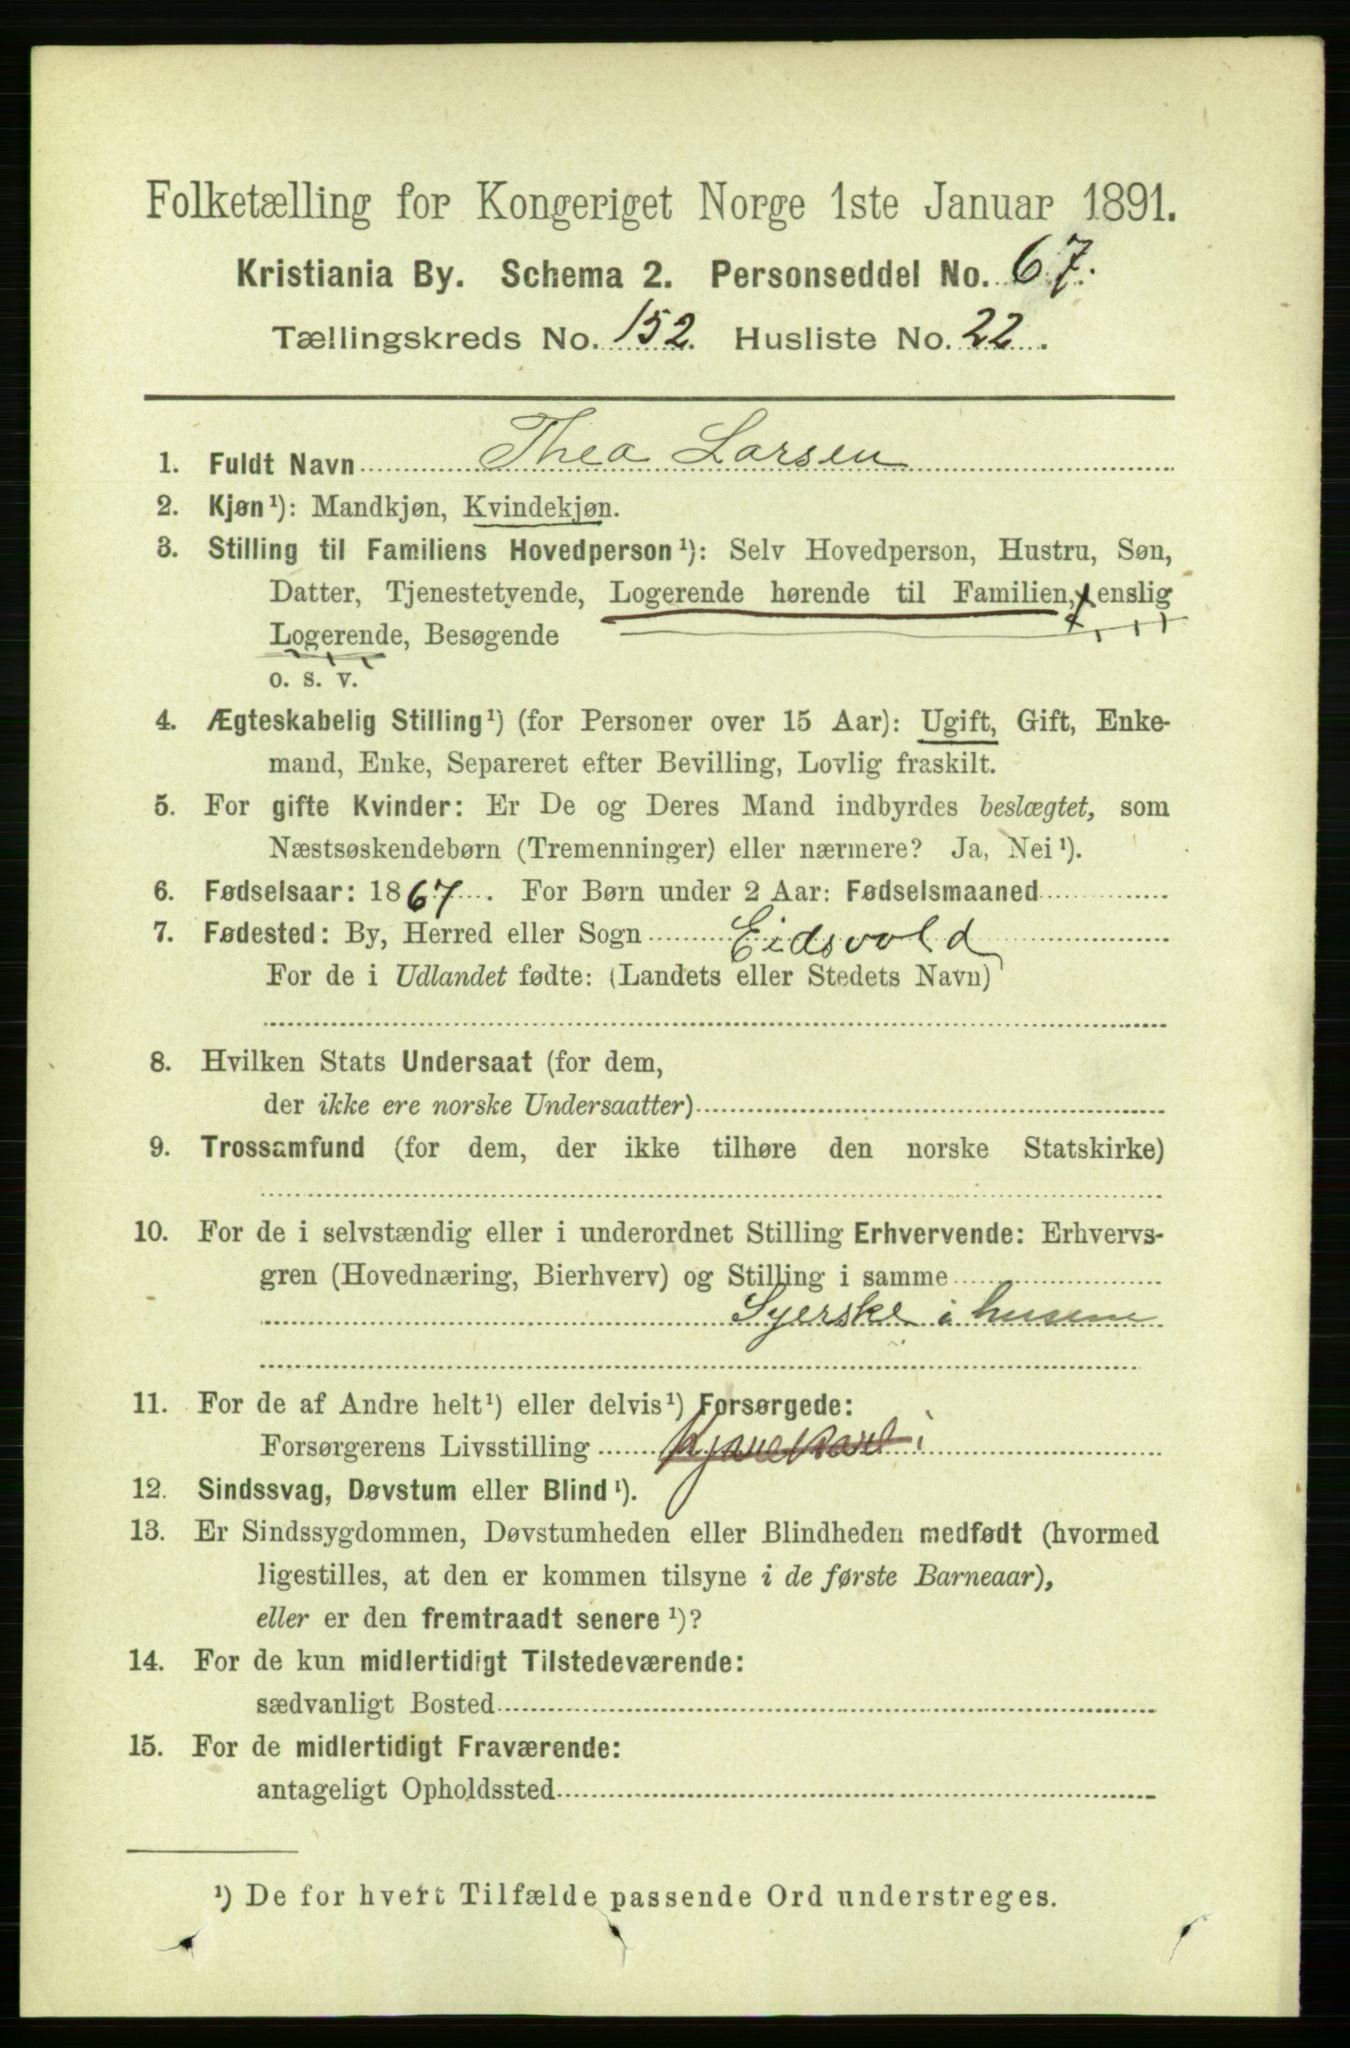 Folketælling for Kongeriget Norge 1ste Januar 1891.
Kristiania By. Schema 2. Personseddel No. 67.
Tællingskreds No. 152. Husliste No. 22.
1. Fuldt Navn Thea Larsen
2. Kjøn¹): Mandkjøn, Kvindekjøn.
3. Stilling til Familiens Hovedperson¹): Selv Hovedperson, Hustru, Søn,
Datter, Tjenestetyende, Logerende hørende til Familien, enslig
Logerende, Besøgende
o. s. v.
4. Ægteskabelig Stilling¹) (for Personer over 15 Aar): Ugift, Gift, Enke-
mand, Enke, Separeret efter Bevilling, Lovlig fraskilt.
5. For gifte Kvinder: Er De og Deres Mand indbyrdes beslægtet, som
Næstsøskendebørn (Tremenninger) eller nærmere? Ja, Nei¹).
6. Fødselsaar: 1867. For Børn under 2 Aar: Fødselsmaaned
7. Fødested: By, Herred eller Sogn Eidsvold
For de i Udlandet fødte: (Landets eller Stedets Navn)
8. Hvilken Stats Undersaat (for dem,
der ikke ere norske Undersaatter)
9. Trossamfund (for dem, der ikke tilhøre den norske Statskirke)
10. For de i selvstændig eller i underordnet Stilling Erhvervende: Erhvervs-
gren (Hovednæring, Bierhverv) og Stilling i samme
Syerske i husene
11. For de af Andre helt¹) eller delvis¹) Forsørgede:
Forsørgerens Livsstilling
12. Sindssvag, Døvstum eller Blind¹).
13. Er Sindssygdommen, Døvstumheden eller Blindheden medfødt (hvormed
ligestilles, at den er kommen tilsyne i de første Barneaar),
eller er den fremtraadt senere¹)?
14. For de kun midlertidigt Tilstedeværende:
sædvanligt Bosted
15. For de midlertidigt Fraværende:
antageligt Opholdssted
¹) De for hvert Tilfælde passende Ord understreges.